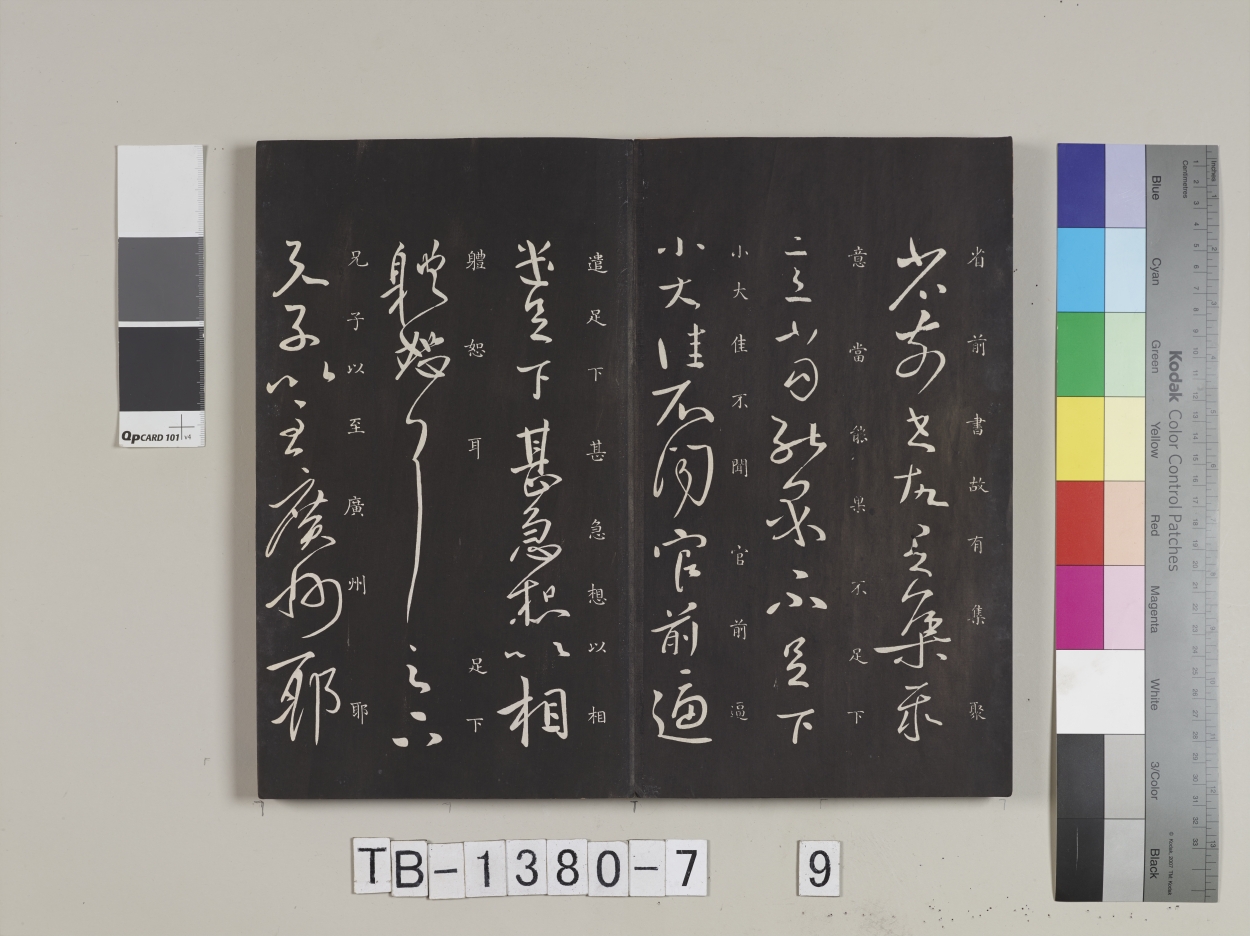 省前書故有集聚
意當能果不足下
小大佳不聞官前逼
遣足下甚急想以相
軆恕耳 足下
兄子以至廣州耶
QPCARD 101 v4
TB-1380-7 9
Kodak Color Control Patches
Blue
Cyan
Green
Yellow
Red
Magenta
White
3/Color
Black
Inches
Centimetres
© Kodak, 2007 TM: Kodak